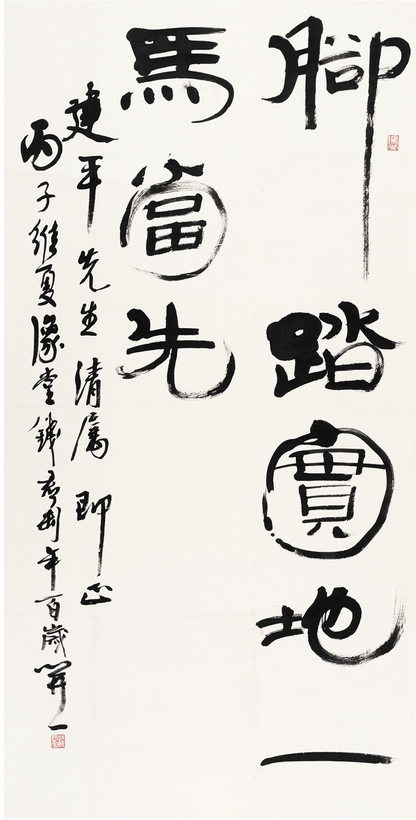 腳踏實地一
馬當先
建平先生清屬即正
丙子維夏豫堂錢君匋年百歲開一